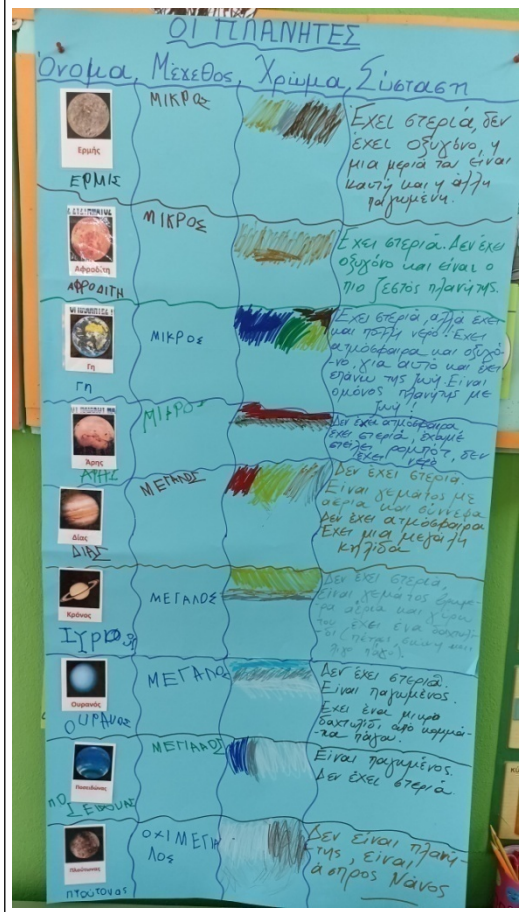 ΟΙ ΠΛΑΝΗΤΕΣ
Όνομα, Μέγεθος, Χρώμα, Σύσταση
Ερμής
ΕΡΜΙΣ
ΜΙΚΡΟΣ
Έχει στεριά, δεν
έχει οξυγόνο, η
μια μεριά του είναι
καυτή και η άλλη
παγωμένη.
Αφροδίτη
ΑΦΡΟΔΙΤΗ
ΜΙΚΡΟΣ
Έχει στεριά. Δεν έχει
οξυγόνο και είναι ο
πιο ζεστός πλανήτης.
Γη
Γη
ΜΙΚΡΟΣ
Έχει στεριά, αλλά έχει
και πολύ νερό! Έχει
ατμόσφαιρα και οξυγό-
νο, για αυτό και έχει
επάνω της ζωή. Είναι
ο μόνος πλανήτης με
ζωή!
Άρης
ΑΡΗΣ
ΜΙΚΡΟΣ
Δεν έχει ατμόσφαιρα
έχει στεριά, έχουμε
στείλει ρομπότ, δεν
έχει νερό
Δίας
ΔΙΑΣ
ΜΕΓΑΛΟΣ
Δεν έχει στεριά.
Είναι γεμάτος με
αέρια και σύννεφα
Δεν έχει ατμόσφαιρα
Έχει μια μεγάλη
κηλίδα
Κρόνος
ΜΕΓΑΛΟΣ
Δεν έχει στεριά,
είναι γεμάτος
αέρια και γύρω
του έχει ένα
Ουρανός
ΟΥΡΑΝΟΣ
ΜΕΓΑΛΟ
Δεν έχει στεριά.
Είναι παγωμένος.
Έχει ένα μικρό
δαχτυλίδι από κομμά-
τια πάγου.
Ποσειδώνας
ΠΟ
ΣΕΙΔΟΝΑΣ
ΜΕΓΑΛΟΣ
Είναι παγωμένος.
Δεν έχει στεριά
Πλούτωνας
ΠΛΟΥΤΟΝΑΣ
ΟΧΙ ΜΕΓΑ
ΛΟΣ
Δεν είναι πλανή-
της, είναι
άσπρος Νάνος